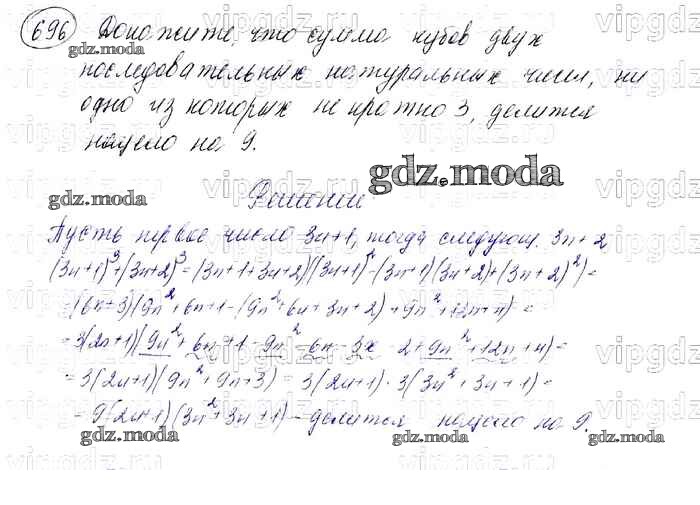 696 Докажите, что сумма кубов двух
последовательных натуральных чисел, ни
одно из которых не кратно 3, делится
нацело на 9.
Решение
Пусть первое число 3n+1, тогда следующ. 3n+2
(3n+1)³+(3n+2)³=(3n+1+3n+2)((3n+1)²-(3n+1)(3n+2)+(3n+2)²)=
=(6n+3)(9n²+6n+1-(9n²+6n+3n+2)+9n²+12n+4)=
=3(2n+1)(9n²+6n+1-9n²-6n-3n-2+9n²+12n+4)=
=3(2n+1)(9n²+9n+3)=3(2n+1)·3(3n²+3n+1)=
=9(2n+1)(3n²+3n+1)-делится нацело на 9.
gdz.moda
vipgdz